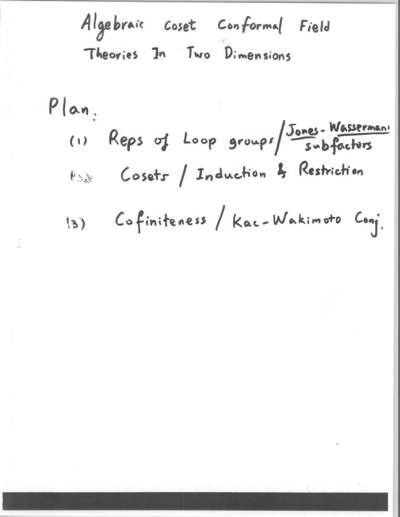 Algebraic Coset Conformal Field
Theories In Two Dimensions
Plan:
(1) Reps of Loop groups / Jones-Wassermann
subfactors
Cosets / Induction & Restriction
(3) Cofiniteness / Kac-Wakimoto Conj.